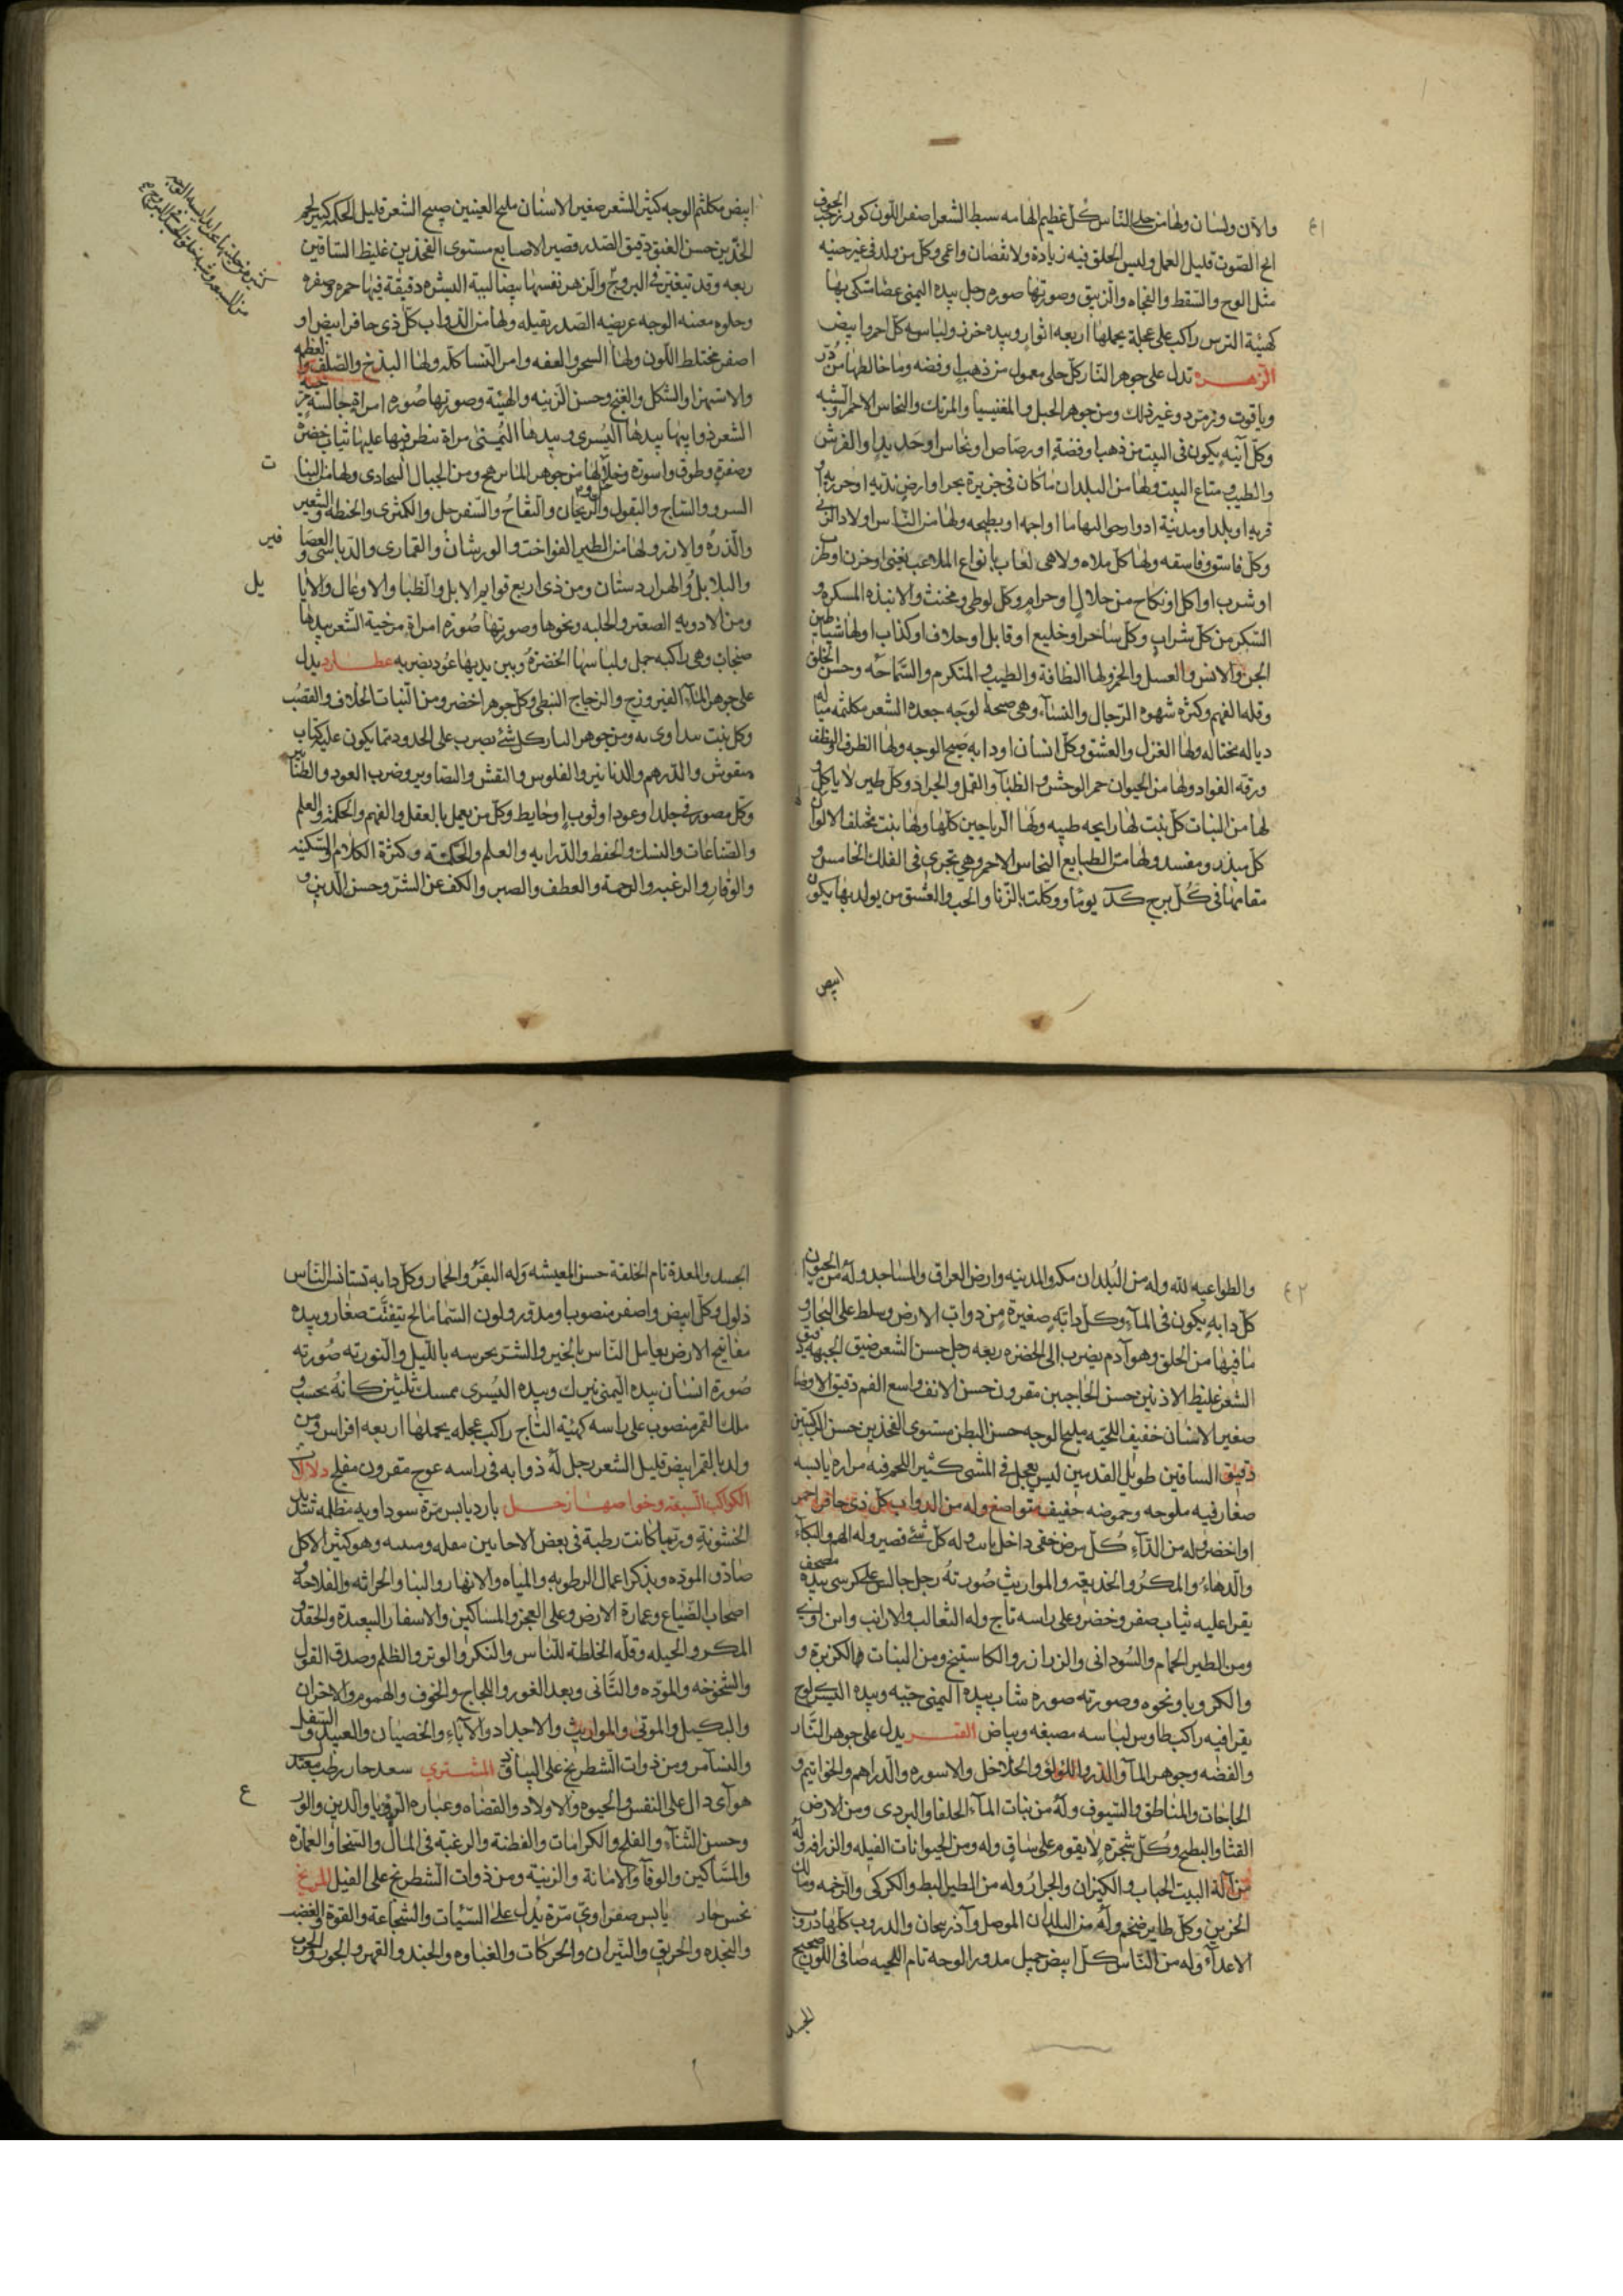 ٤١
والاذن ولسان ولها من حلى الناس كل عظيم الهامه سبط الشعر اصفر اللون كورجب الجوف
ابح الصوت قليل العمل وليس الخلق فيه زيادة ولا نقصان واعمى وكل من ولد في غير حينه
مثل الوح والسقط والنجاه والزيبق وصورتها صوره رجل بيده اليمنى عصا متكى بها
كهيئة الترس راكب على عجلة يحملها اربعه اثوار وبيده خرز ولباسه كل احمر وابيض
الزهره تدل على جوهر النار كل حلى معمول من ذهب او فضه وما خالطها من در
وياقوت وزمرد وغير ذلك ومن جوهر الجبل والمغنيسيا والمرتك والنحاس الاحمر والشبه
وكل آنيه يكون في البيت من ذهب او فضة او رصاص او نحاس او حديد او الفرش
والطيب ومتاع البيت ولها من البلدان ما كان في جزيرة بحر او ارض نديه او خربه او
قريه او بلد او مدينة ادوار حواليها ما او اجه او بطيحه ولها من الناس اولاد الزنى
وكل فاسق وفاسقه ولها كل ملاه ولاهى لعاب بانواع الملاعب يغنى او خزن او طرب
او شرب او اكل او نكاح من حلال او حرام وكل لوطى ومخنث والانبذه المسكره و
السكر من كل شراب وكل ساخر او خليع او قابل او حلاف او كذاب او لها شياطين
الجن والانس والعسل والخمر ولها النظافة والطيب والمتكرم والسماحه وحسن الخلق
وقله الفهم وكثره شهوه الرجال والنساء وهى صبحة الوجه جعده الشعر مكلثمه ميا له
دياله مختاله ولها الغزل والعشق وكل انسان او دابه صبيح الوجه ولها الظرف الوظف
ورقه الفواد ولها من الحيوان حمر الوحش والظبا والقمل والجراد وكل طير لا ياكل و
لها من النبات كل نبت لها رايحه طيبه ولها الرياحين كلها ولها نبت مختلف الالوان
كل مبذر ومفسد ولها من الطبايع النحاس الاحمر وهي تجري في الفلك الخامس و
مقامها في كل برج كد يوما ووكلت بالزنا والحب والعشق من يولد بها يكون
ابيض
ابيض مكلثم الوجه كثير الشعر صغير الاسنان مليح العينين صبيح الشعر قليل الحكمه كبير لحم
الخدين حسن العنق دقيق الصدر قصير الاصابع مستوى الفخذين غليظ الساقين
ربعه وقد تيغتين في البروج والزهر نفسها بيضا لبيبه البشره دقيقة فيها حمره وصفره
وحلوه معينه الوجه عريضه الصدر بقيله ولها من الدواب كل ذى حافر ابيض او
اصفر مختلط اللون ولها السحر والعفه وامر النسا كله ولها البذخ والصلف والعظمه
والاستهزا والشكل والغنج وحسن الزينه والهيئة وصورتها صوره امراة جالسة مرخيه
الشعر ذوايبها بيدها اليسرى وبيدها اليمنى مراة تنظر فيها عليها ثياب خضر و
وصفرة وطوق واسورة وخلاخل لها من جوهر النار رهج ومن الجبال البجادى ولها من النبا
ت
السرو والساج والبقول والريحان والتفاح والسفرجل والكمثرى والحنطه والشعير
والذره والارز ولها من الطير الفواخت والورشان والقمارى والدباسى والعصا
فير
والبلابل والهزاردستان ومن ذى اربع قوايم الابل والظبا والاوعال والايا
يل
ومن الادويه الصعتر والحلبه ونحوها وصورتها صوره امراة مرخية الشعر بيدها
صنجان وهى راكبه جمل ولباسها الخضرة وبين يديها عود يضربه عطارد يدل
على جوهر الماء الفيروزج والزجاج النبطى وكل جوهر اخضر ومن النبات الخلاف والقصب
وكل نبت يتداوى به ومن جوهر النار كل شئ يضرب على الحدود مما يكون عليه كتاب
منقوش والدرهم والدنانير والفلوس والنقش والتصاوير وضرب العود والطنا بير
وكل مصور في جلد او عود او ثوب او حايط وكل من يعمل بالعقل والفهم والحكمه والعلم
والصناعات والنسك والحفظ والدرايه والعلم والحكمة وكثرة الكلام والسكينه
والوقار والرغبه والرحمة والعطف والصبر والكف عن الشر وحسن الدين و
٤٢
والطواعيه لله وله من البلدان مكه والمدينه وارض العراق والمساجد وله من الحيوان
كل دابه يكون في الماء وكل دابة صغيرة من دواب الارض وسلط على البحار و
ما فيها من الخلق وهو آدم يضرب الى الخضره ربعه رجل حسن الشعر ضيق الجبهه دقيق
الشعر غليظ الاذنين حسن الحاجبين مقرون حسن الانف واسع الفم دقيق الاوصا
صغير الاسنان خفيف اللحيه مليح الوجه حسن البطن مستوى الفخذين حسن الركبتين
دقيق الساقين طويل القدمين ليس يعجل في المشى كثير اللحم فيه مراره يابسه
صفار فيه ملوحه وحموضه خفيف متواضع وله من الدواب كل ذى حافر احمر
او اخضر وله من الداء كل مرض خفى داخل يابس وله كل شئ قصير وله الهم والبكاء
والدهاء والمكر والخديعه والمواريث صورته رجل جالس على كرسى بيده مصحف
يقرا عليه ثياب صفر وخضر وعلى راسه تاج وله الثعالب والارانب وابن اوى
ومن الطير الحمام والسودانى والزرازر والكاستينج ومن النبات الكزبرة و
والكرويا ونحوه وصورته صوره شاب بيده اليمنى حيه وبيده اليسرى لوح
يقرا فيه راكب طاوس لباسه مصبغه وبياض القمر يدل على جوهر النار
والفضه وجوهر الماء والدر واللولو والخلاخل والاسوره والدراهم والخواتيم و
الحاجات والمناطق والسيوف وله من نبات الماء الحلفا والبردى ومن الارض
القثا والبطيخ وكل شجرة لا يقوم على ساق وله ومن الحيوانات الفيله والزرافه وله
من آلة البيت الحباب والكيزان والجرار وله من الطير البط والكركى والرخمه ومالك
الحزين وكل طاير ضخم وله من البلدان الموصل وآذربيجان والدروب كلها دروب
الاعداء وله من الناس كل ابيض جميل مدور الوجه تام اللحيه صافى اللون صحيح
الجسد
الجسد والمعدة تام الخلقة حسن المعيشه وله البقر والحمار وكل دابه تستانس الناس
ذلول وكل ابيض واصفر منصوبا ومدور ولون السما مالح يتفتت صغار وبيده
مفاتيح الارض يعامل الناس بالخير والشر يحرسه بالليل والنور ته صورته
صورة انسان بيده اليمنى نيزك وبيده اليسرى ممسك ثلثين كانه يحسب و
ملك القمر منصوب على راسه كهيئة التاج راكب عجله يحملها اربعه افراس ومن
ولد بالقمر ابيض قليل الشعر رجل له ذوابه في راسه عوج مقرون مفلج دلالات
الكواكب السبعه وخواصها زحل بارد يابس مرة سوداويه مظلمه شديد
الخشونة وربما كانت رطبة في بعض الاحايين وهو كثير الاكل
صادق الموده ويذكر اعمال الرطوبه والمياه والانهار والبنا والحراثه والفلاحة و
اصحاب الضياع وعمارة الارض وعلى العجز والمساكين والاسفار البعيدة والحقد و
المكر والحيله وقلة الخلطة للناس والنكر والوتر والظلم وصدق القول
والشخوخه والموده والتانى وبعد الغور واللجاج والخوف والهموم والاحزان
والتكبيل والموتى والمواريث والاجداد والآباء والخصيان والعبيد والسفل
والنسآ من ومن ذوات الشطرنج على البياذق المشترى سعد حار رطب معتد
هوآى دال على النفس والحيوه والاولاد والقضاه وعباره الرويا والدين والور
ع
وحسن الثناء والفلح والكرامات والفطنة والرغبة في المال والسخا والعمارة
والمساكين والوفا والامانة والزينه ومن ذوات الشطرنج على الفيل المريخ
نحس حار يابس صفراوى مرة يدل على السيئات والشجاعة والقوة والغضب
والنجده والحريق والنيران والحركات والغباوه والجند والقهر والجور والحرب